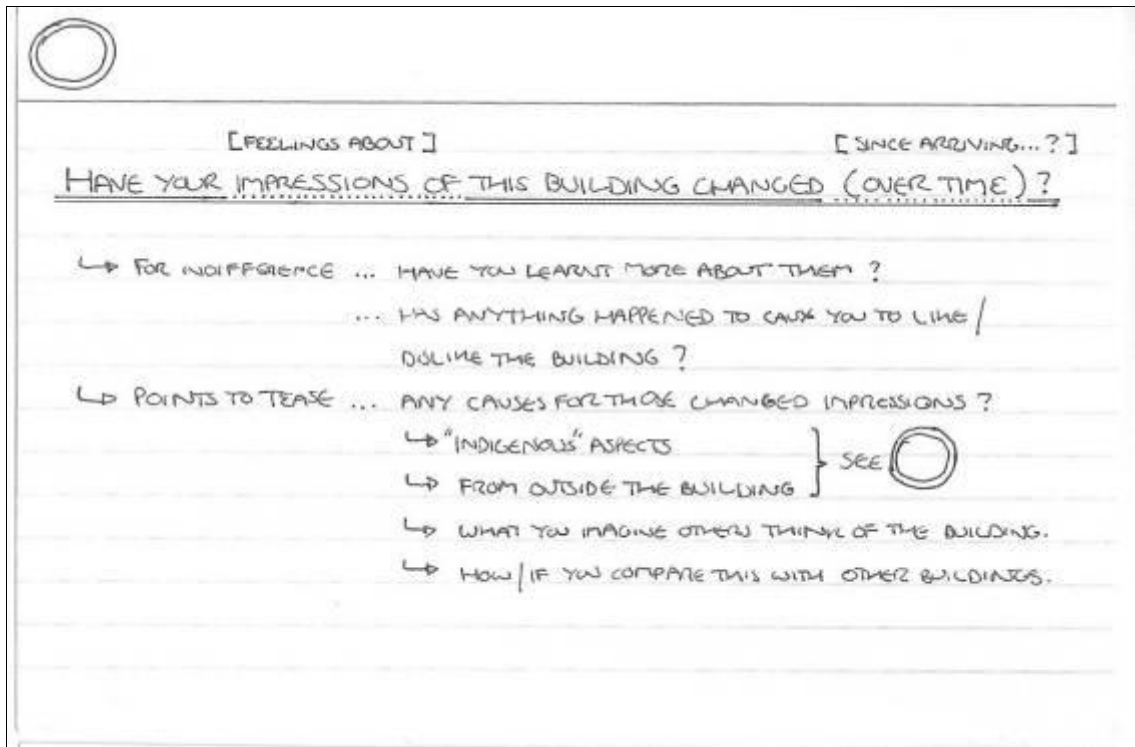 [FEELINGS ABOUT] [SINCE ARRIVING...?]
HAVE YOUR IMPRESSIONS OF THIS BUILDING CHANGED (OVER TIME)?
↳ FOR INDIFFERENCE ... HAVE YOU LEARNT MORE ABOUT THEM?
... HAS ANYTHING HAPPENED TO CAUSE YOU TO LIKE/
DISLIKE THE BUILDING?
↳ POINTS TO TEASE ... ANY CAUSES FOR THOSE CHANGED IMPRESSIONS?
↳ "INDIGENOUS" ASPECTS
↳ FROM OUTSIDE THE BUILDING } SEE
↳ WHAT YOU IMAGINE OTHERS THINK OF THE BUILDING.
↳ HOW/IF YOU COMPARE THIS WITH OTHER BUILDINGS.